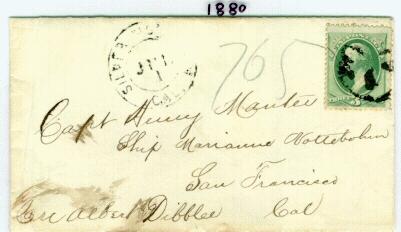 1880
765
JUL
1
Capt Henry Manter
Ship Marianne Nottebohm
San Francisco
Care Albert Dibblee Cal